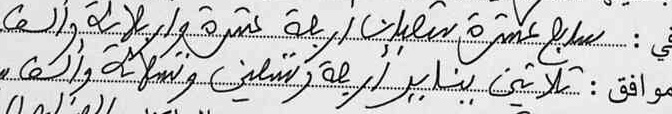 في : سابع عشرة شعبان اربعة عشرة واربعمائة وألف
موافق : ثلاثين يناير أربعة وتسعين وتسعمائة وألف